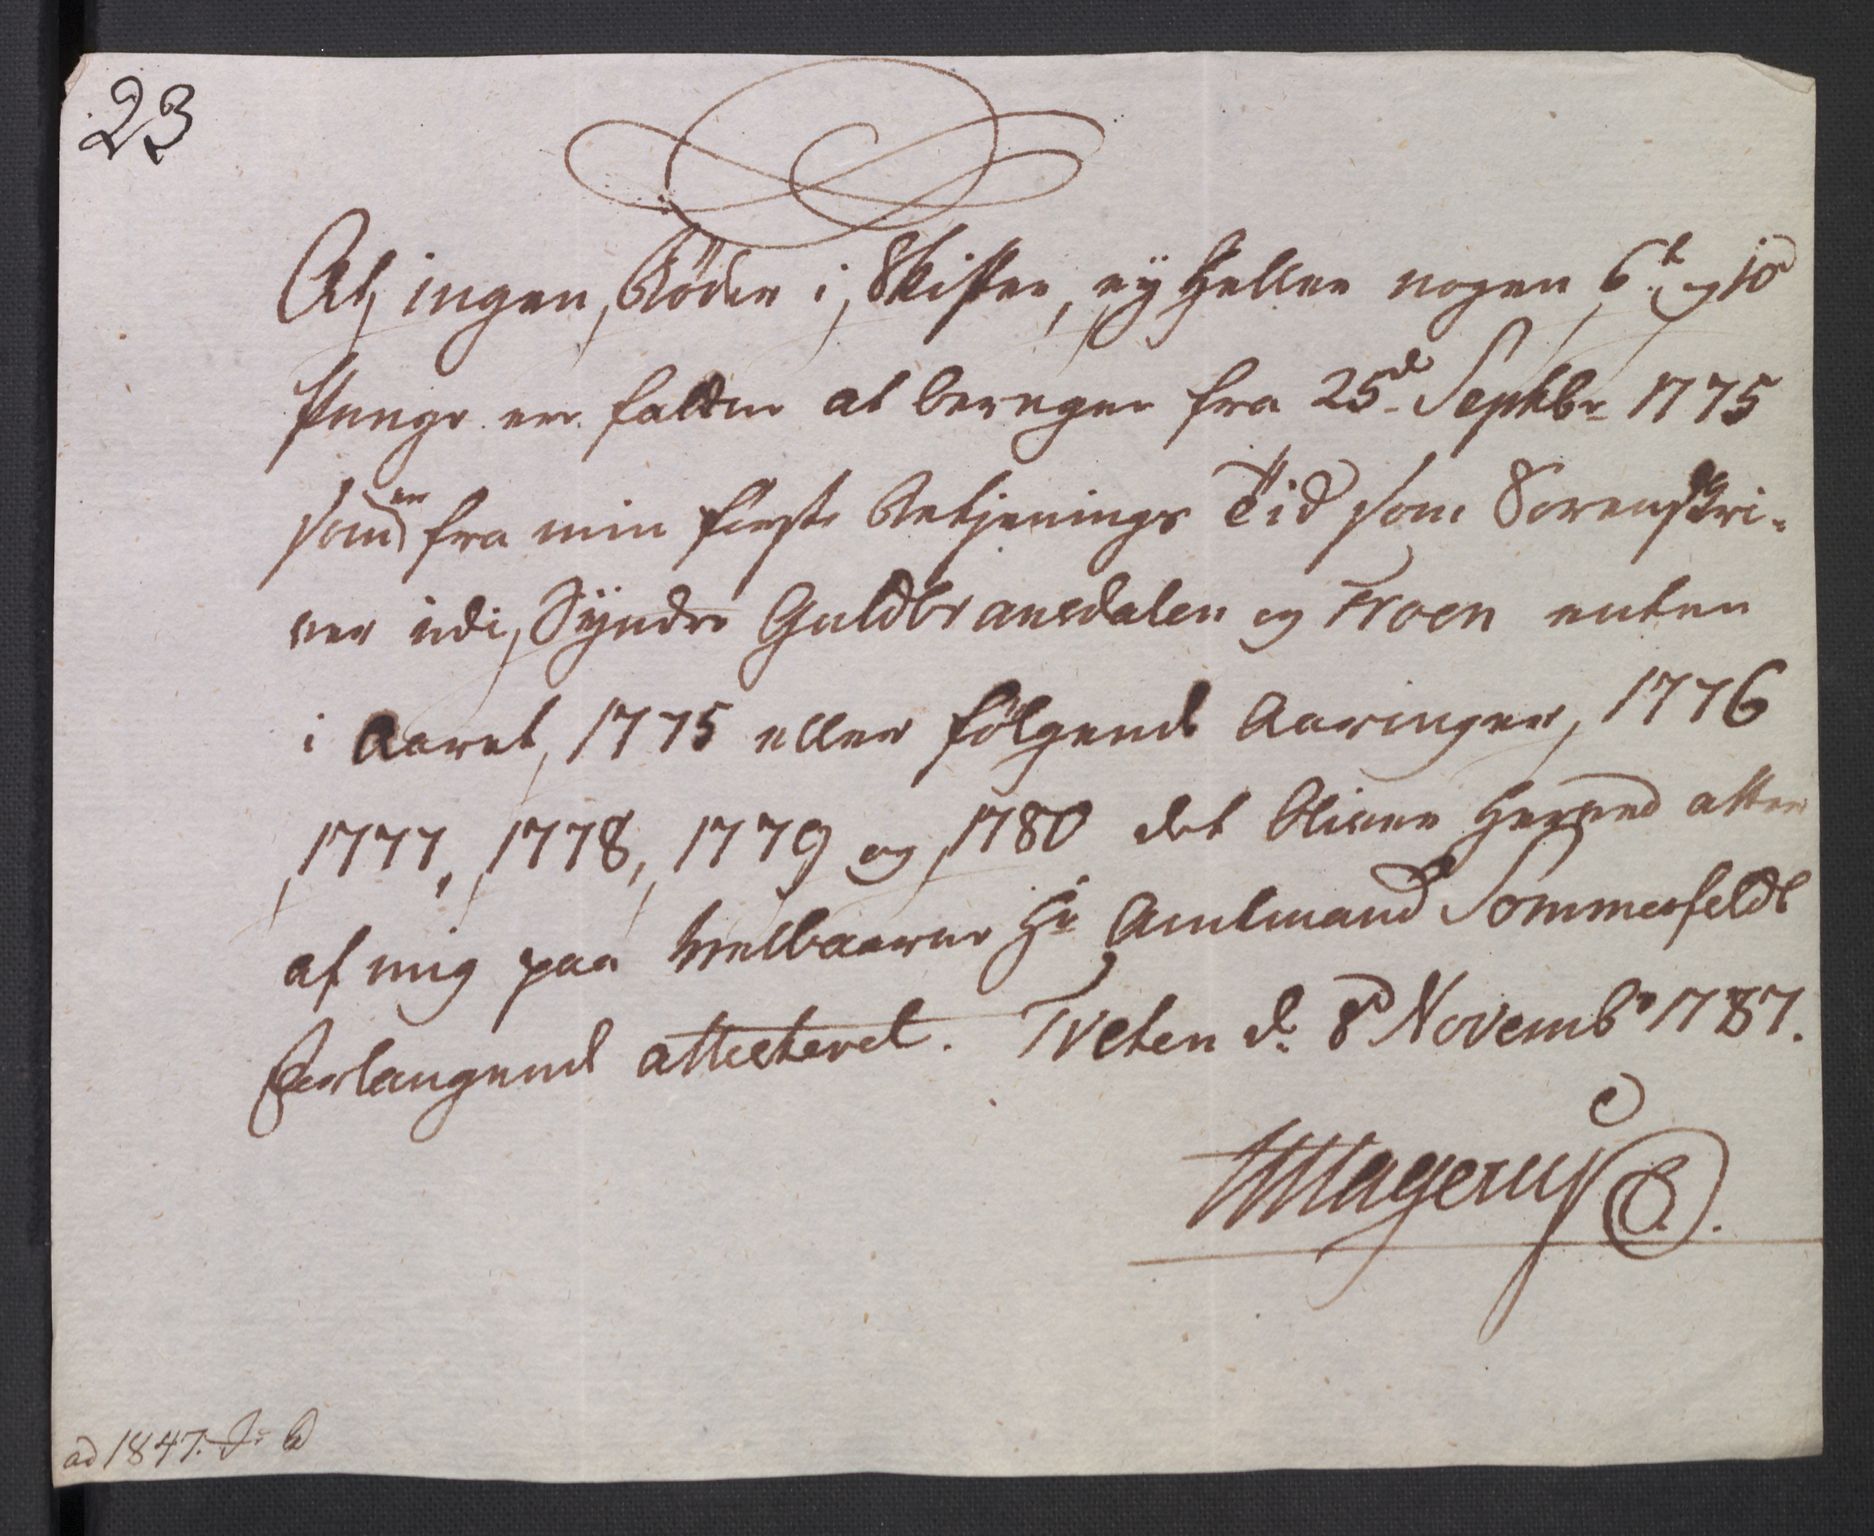 23
At ingen Bøder i Skifter, ey heller nogen 6t og 10d
Penge er falden at beregne fra 25de Septbr 1775
som er fra min første Betjenings Tid som Sorenskri-
ver udi Syndre Guldbransdalen og Froen enten
i Aaret 1775 eller følgende Aaringer, 1776
1777, 1778, 1779 og 1780 det bliver herved efter
af mig paa Velbaarne Hr Amtmand Sommerfeldt
Forlangende attesteret. Tveten d. 8d Novembr 1787.
Magerup
ad 1847.